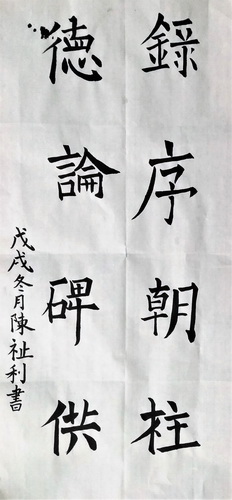 錄序朝柱
德論碑供
戊戌冬月陳祉利書